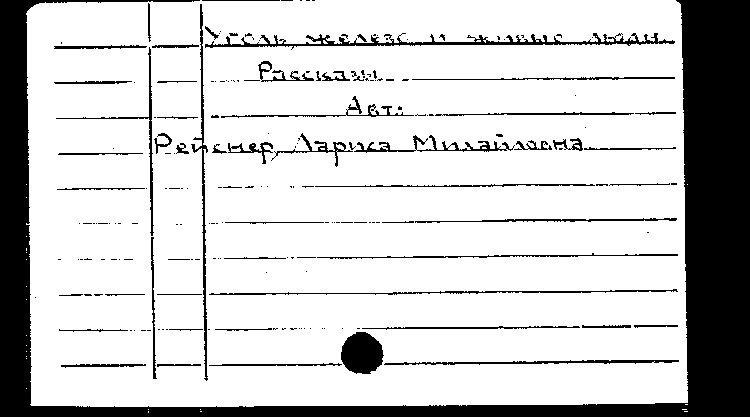 Уголь, железо и живые люди.
Рассказы
Авт:
Рейснер, Лариса Михайловна